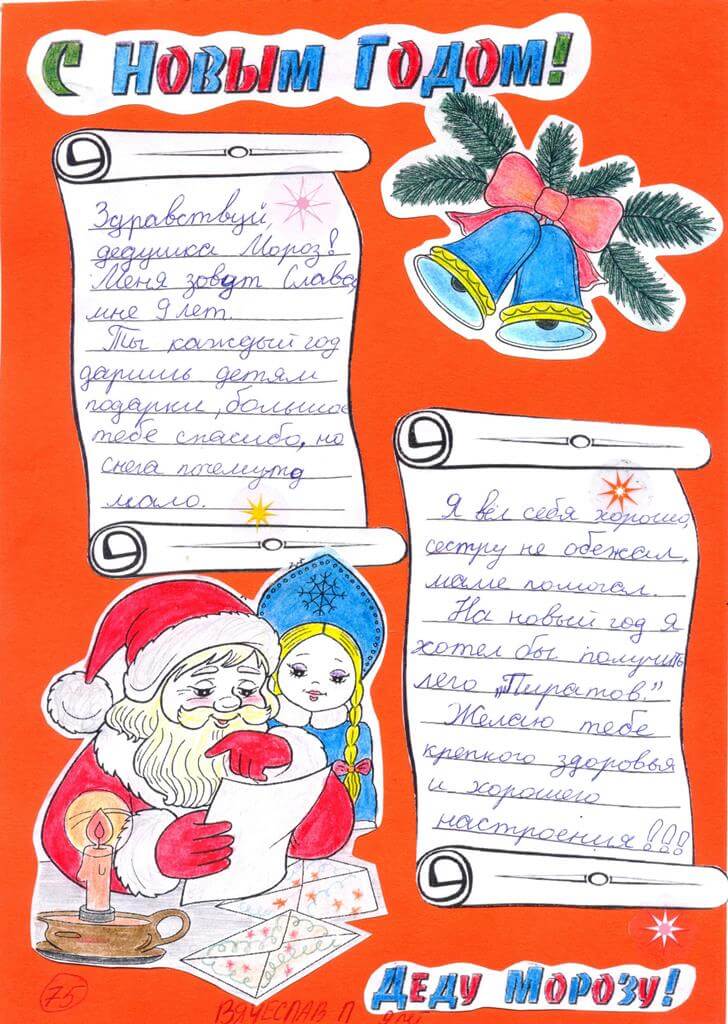 С Новым Годом!
Здравствуй,
дедушка Мороз!
Меня зовут Слава,
мне 9 лет.
Ты каждый год
даришь детям
подарки, большое
тебе спасибо, но
снега почемуто
мало.
Я вёл себя хорошо,
сестру не обежал,
маме помогал.
На новый год я
хотел бы получить
лего „Пиратов."
Желаю тебе
крепкого здоровья
и хорошего
настроения!!!
Деду Морозу!
75
Вячеслав П 9 лет